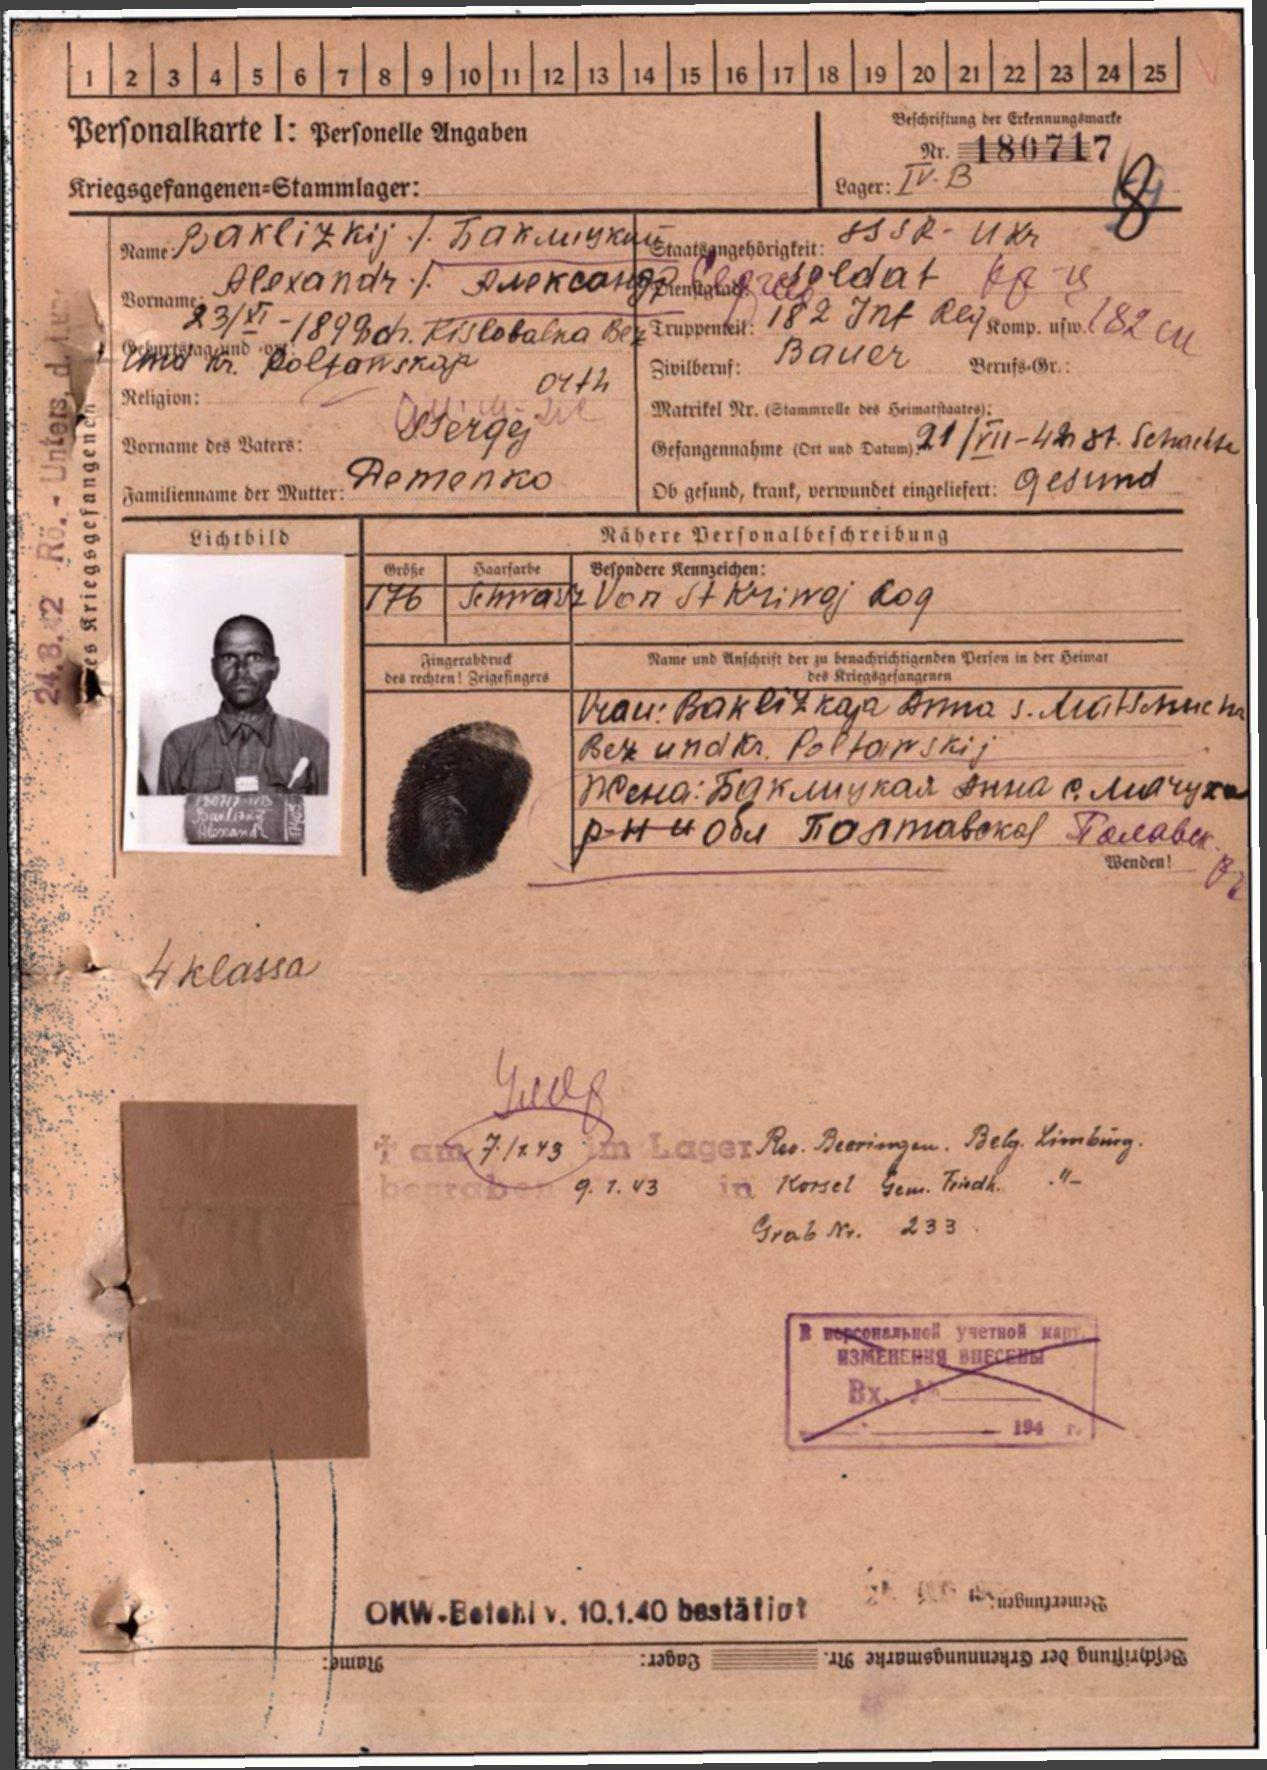 1 2 3 4 5 6 7 8 9 10 11 12 13 14 15 16 17 18 19 20 21 22 23 24 25
Personalkarte I: Personelle Angaben
Kriegsgefangenen=Stammlager:
Beschriftung der Erkennungsmarke
Nr. 180717
Lager: IV-B
8
Name: Baklizkij ./. Баклицкий
Vorname: Alexandr ./. Александр
Geburtstag und -ort 23/XI-1899 ch. Kislobalka Bez
und Kr. Poltawskaja
Religion: orth
Vorname des Vaters: Sergej
Familienname der Mutter: Demenko
Staatsangehörigkeit: SSSR-Ukr
Dienstgrad: Soldat
Truppenteil: 182 Inf Reg Komp. usw.: 182 сп
Zivilberuf: Bauer Berufs-Gr.:
Matrikel Nr. (Stammrolle des Heimatstaates):
Gefangennahme (Ort und Datum): 21/VII-42 st. Schachte
Ob gesund, krank, verwundet eingeliefert: gesund
24.8.42 Rö.- Unters. d.
des Kriegsgefangenen
Lichtbild
Nähere Personalbeschreibung
Größe Haarfarbe Besondere Kennzeichen:
176 Schwarz Von St Kriwoj Rog
Fingerabdruck
des rechten! Zeigefingers
Name und Anschrift der zu benachrichtigenden Person in der Heimat
des Kriegsgefangenen
Frau: Baklizkaja Anna s. Matschucha
Bez und Kr. Poltawskij
Жена: Баклицкая Анна с. Мачуха
р-н и обл Полтавская
Wenden!
180717-IVB
Baklizkij
Alexandr
4 klassa
† am 7./1.43 im Lager Rev. Beeringen. Belg. Limburg.
begraben 9.1.43 in Korsel Gem. Friedh. -"-
Grab Nr. 233
В персональной учетной карт.
ИЗМЕНЕНИЯ ВНЕСЕНЫ
Вх. №
194 г.
OKW-Befehl v. 10.1.40 bestätigt
Bemerkungen:
Beschriftung der Erkennungsmarke Nr. Lager: Name: